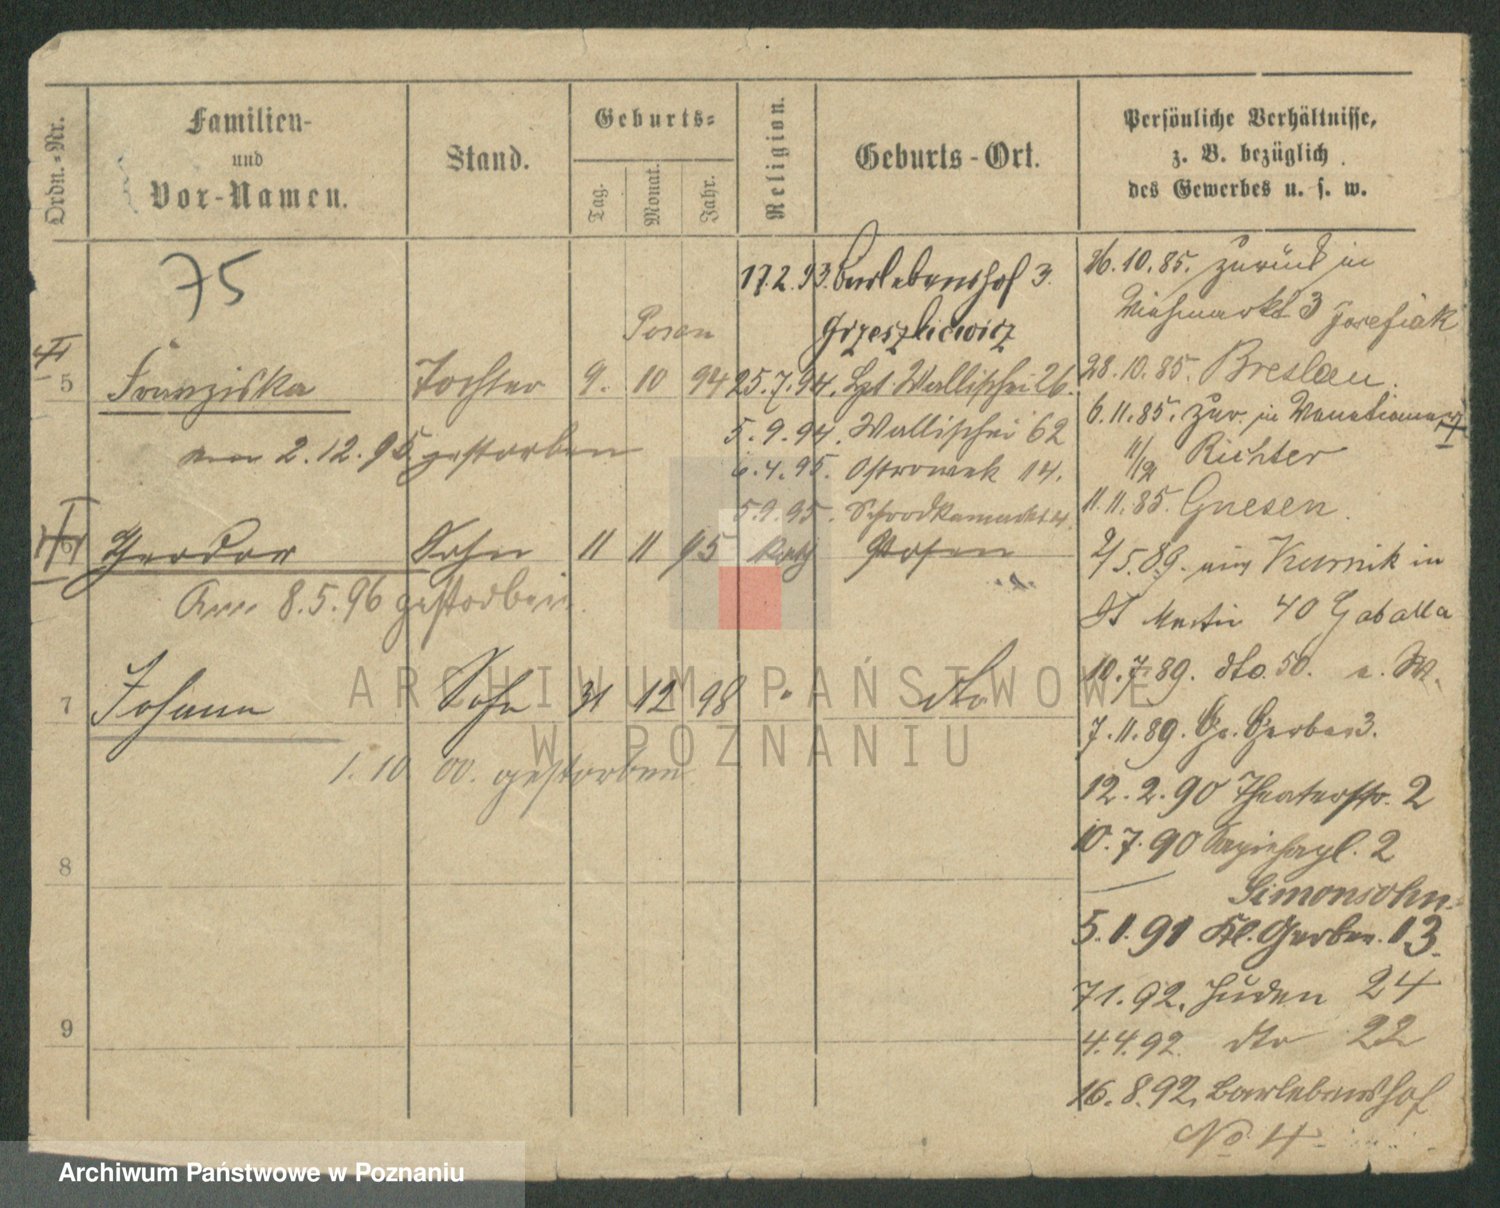 Ordn.-Nr.
Familien-
und
Vor-Namen.
Stand.
Geburts-
Tag.
Monat.
Jahr.
Religion.
Geburts-Ort.
Persönliche Verhältnisse,
z. B. bezüglich
des Gewerbes u. s. w.
75
17.2.93. Berlebenshof 3.
Grzeszkiewicz
Posen
5 Franziska Tochter 9. 10 94 25.7.94. Wallischei 26.
am 2.12.95 gestorben
5.9.94. Wallischei 62
6.4.95. Ostrowek 14.
5.9.95. Schrodkamarkt 4.
6 Theodor Sohn 11 11 95 kath Posen
Am 8.5.96 gestorben.
7 Johann Sohn 31 12 98 " dto
1.10 00. gestorben
8
9
26.10.85. zurück in
Viehmarkt 3 Josefiak
28.10.85. Breslau.
6.11.85. zur. in
11/12 Richter
11.11.85. Gnesen.
2/5.89. aus Kurnik in
St Martin 40 Gaballa
10.7.89. dto. 50.
7.11.89. Gr. Gerber 3.
12.2.90 Theaterstr. 2
10.7.90 Sapiehapl. 2
Simonsohn
5.1.91 Kl. Gerber. 13.
7 1.92. Juden 24
4.4.92. dto 22
16.8.92. Berlebenshof
No 4
ARCHIWUM PAŃSTWOWE
W POZNANIU
Archiwum Państwowe w Poznaniu